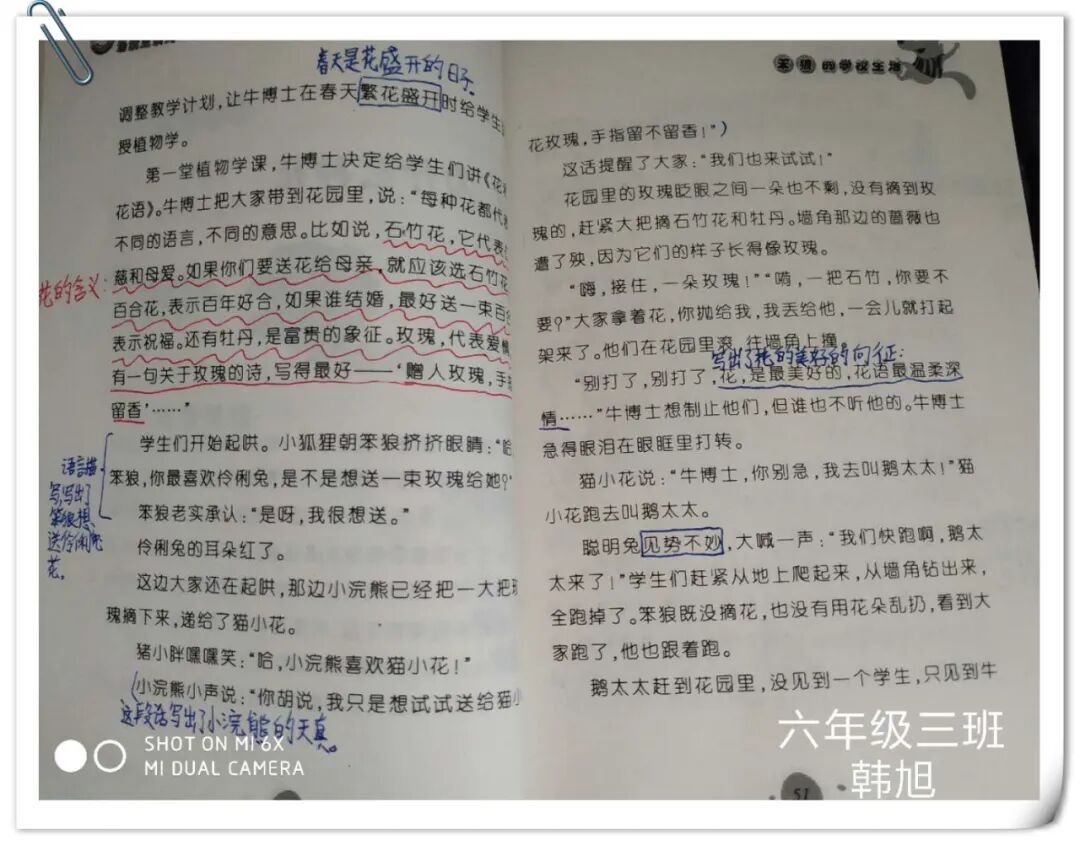 春天是花盛开的日子。
调整教学计划，让牛博士在春天繁花盛开时给学生
授植物学。
第一堂植物学课，牛博士决定给学生们讲《花
花语》。牛博士把大家带到花园里，说：“每种花都代
不同的语言，不同的意思。比如说，石竹花，它代表
慈和母爱。如果你们要送花给母亲，就应该选石竹花
百合花，表示百年好合，如果谁结婚，最好送一束百
表示祝福。还有牡丹，是富贵的象征。玫瑰，代表爱情
有一句关于玫瑰的诗，写得最好——‘赠人玫瑰，手
留香’……”
花的含义：
学生们开始起哄。小狐狸朝笨狼挤挤眼睛：“哈
笨狼，你最喜欢伶俐兔，是不是想送一束玫瑰给她？”
笨狼老实承认：“是呀，我很想送。”
伶俐兔的耳朵红了。
语言描
写，写出了
笨狼想
送伶俐兔
花。
这边大家还在起哄，那边小浣熊已经把一大把玫
瑰摘下来，递给了猫小花。
猪小胖嘿嘿笑：“哈，小浣熊喜欢猫小花！”
小浣熊小声说：“你胡说，我只是想试试送给猫小
这段话写出了小浣熊的天真。
SHOT ON MI 6X
MI DUAL CAMERA
笨狼的学校生活
花玫瑰，手指留不留香！”）
这话提醒了大家：“我们也来试试！”
花园里的玫瑰眨眼之间一朵也不剩，没有摘到玫
瑰的，赶紧大把摘石竹花和牡丹。墙角那边的蔷薇也
遭了殃，因为它们的样子长得像玫瑰。
“嗨，接住，一朵玫瑰！”“嗬，一把石竹，你要不
要？”大家拿着花，你抛给我，我丢给他，一会儿就打起
架来了。他们在花园里滚，往墙角上撞。
写出了花的美好的向征：
“别打了，别打了，花，是最美好的，花语最温柔深
情……”牛博士想制止他们，但谁也不听他的。牛博士
急得眼泪在眼眶里打转。
猫小花说：“牛博士，你别急，我去叫鹅太太！”猫
小花跑去叫鹅太太。
聪明兔见势不妙，大喊一声：“我们快跑啊，鹅太
太来了！”学生们赶紧从地上爬起来，从墙角钻出来，
全跑掉了。笨狼既没摘花，也没有用花朵乱扔，看到大
家跑了，他也跟着跑。
鹅太太赶到花园里，没见到一个学生，只见到牛
51
六年级三班
韩旭